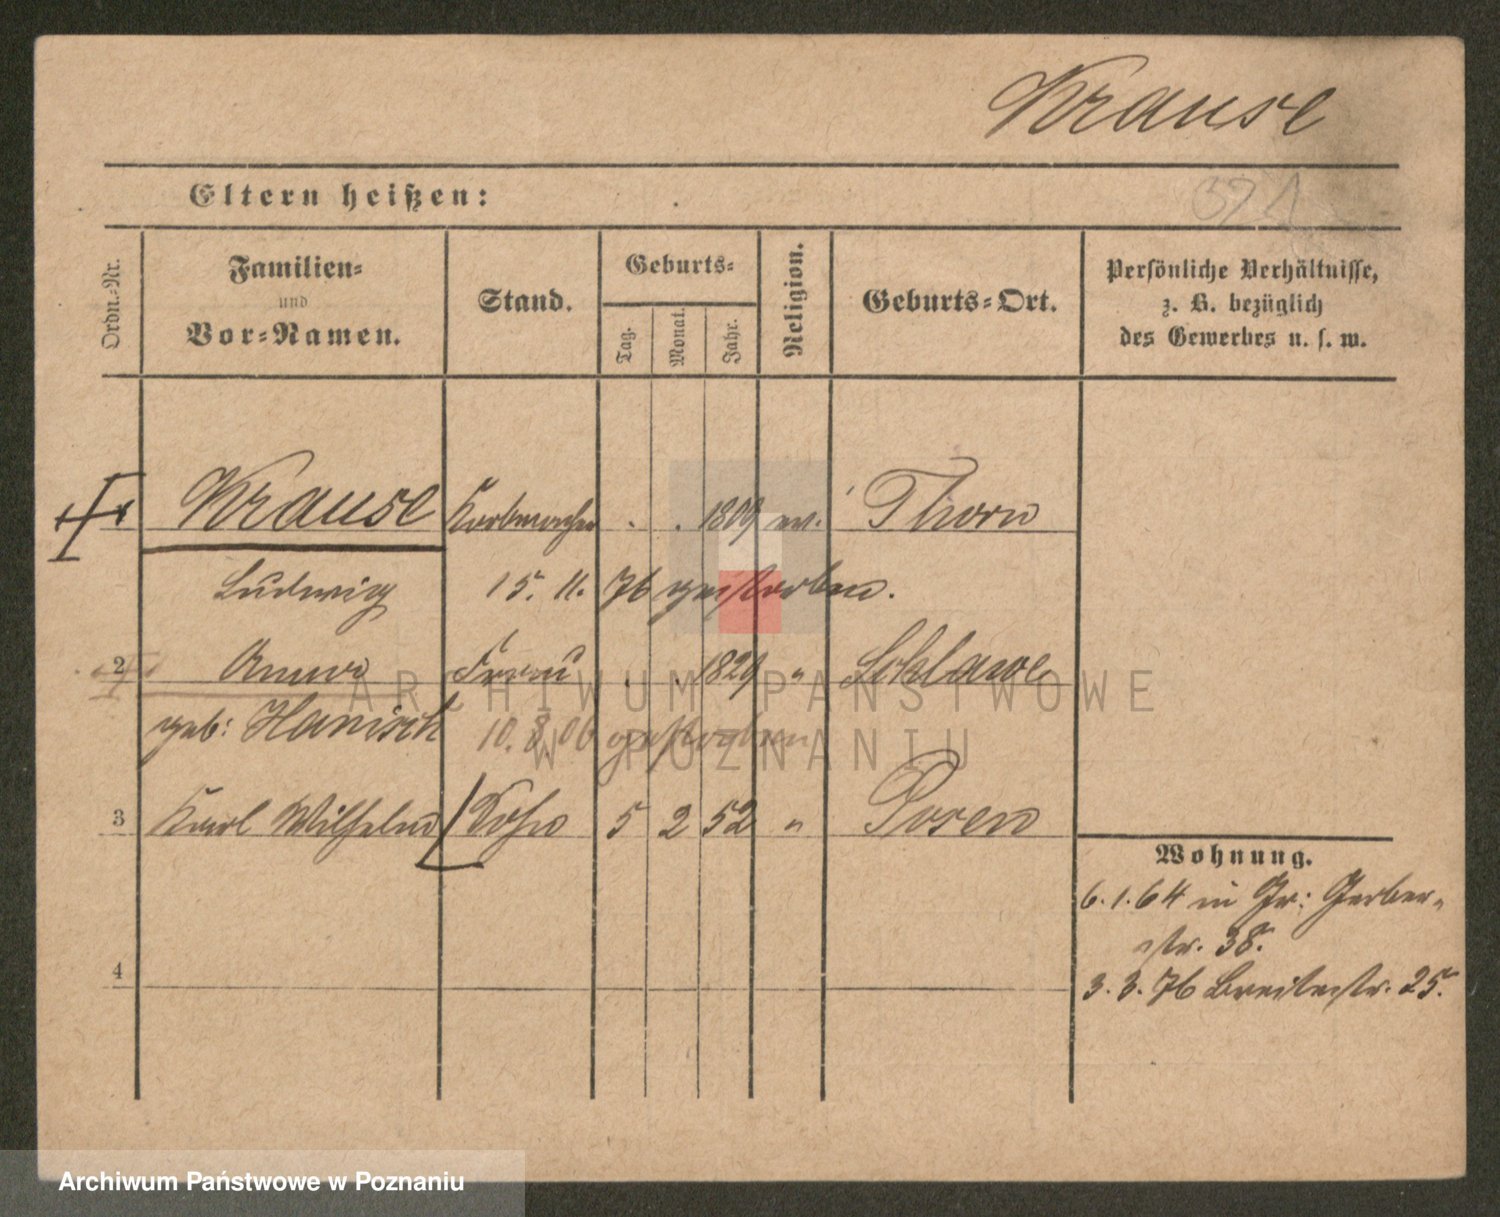 Krause
Eltern heißen:
Ordn.-Nr.
Familien-
und
Vor-Namen.
Stand.
Geburts-
Tag.
Monat.
Jahr.
Religion.
Geburts-Ort.
Persönliche Verhältnisse,
z. B. bezüglich
des Gewerbes u. s. w.
Krause Korbmacher . . 1809 ev. Thorn
Ludwig 15. 11. 76 gestorben.
2 Anna Frau . . 1829 " Schlawe
geb: Hanisch 10. 8. 06 gestorben
3 Karl Wilhelm Sohn 5 2 52 " Posen
Wohnung.
6. 1. 64 in Gr: Gerber-
str. 38.
4
3. 3. 76 Breitestr. 25.
ARCHIWUM PAŃSTWOWE
W POZNANIU
Archiwum Państwowe w Poznaniu